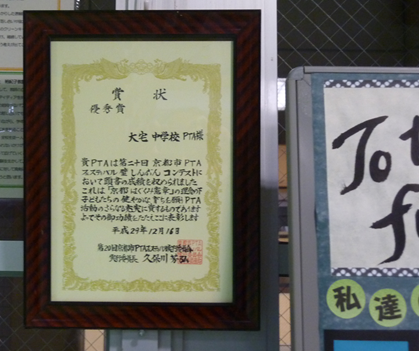 賞 状
優秀賞
大宅中学校 PTA様
貴PTAは第二十回 京都市PTA
フェスティバル 壁しんぶん コンテストに
おいて頭書の成績を収められました
これは「京都はぐくみ憲章」の理念の下
子どもたちの健やかな育ちを目指しPTA
活動のさらなる充実に資するものであります
よってその御功績をたたえここに表彰します
平成29年12月16日
第20回京都市PTAフェスティバル実行委員会
実行委員長
私達